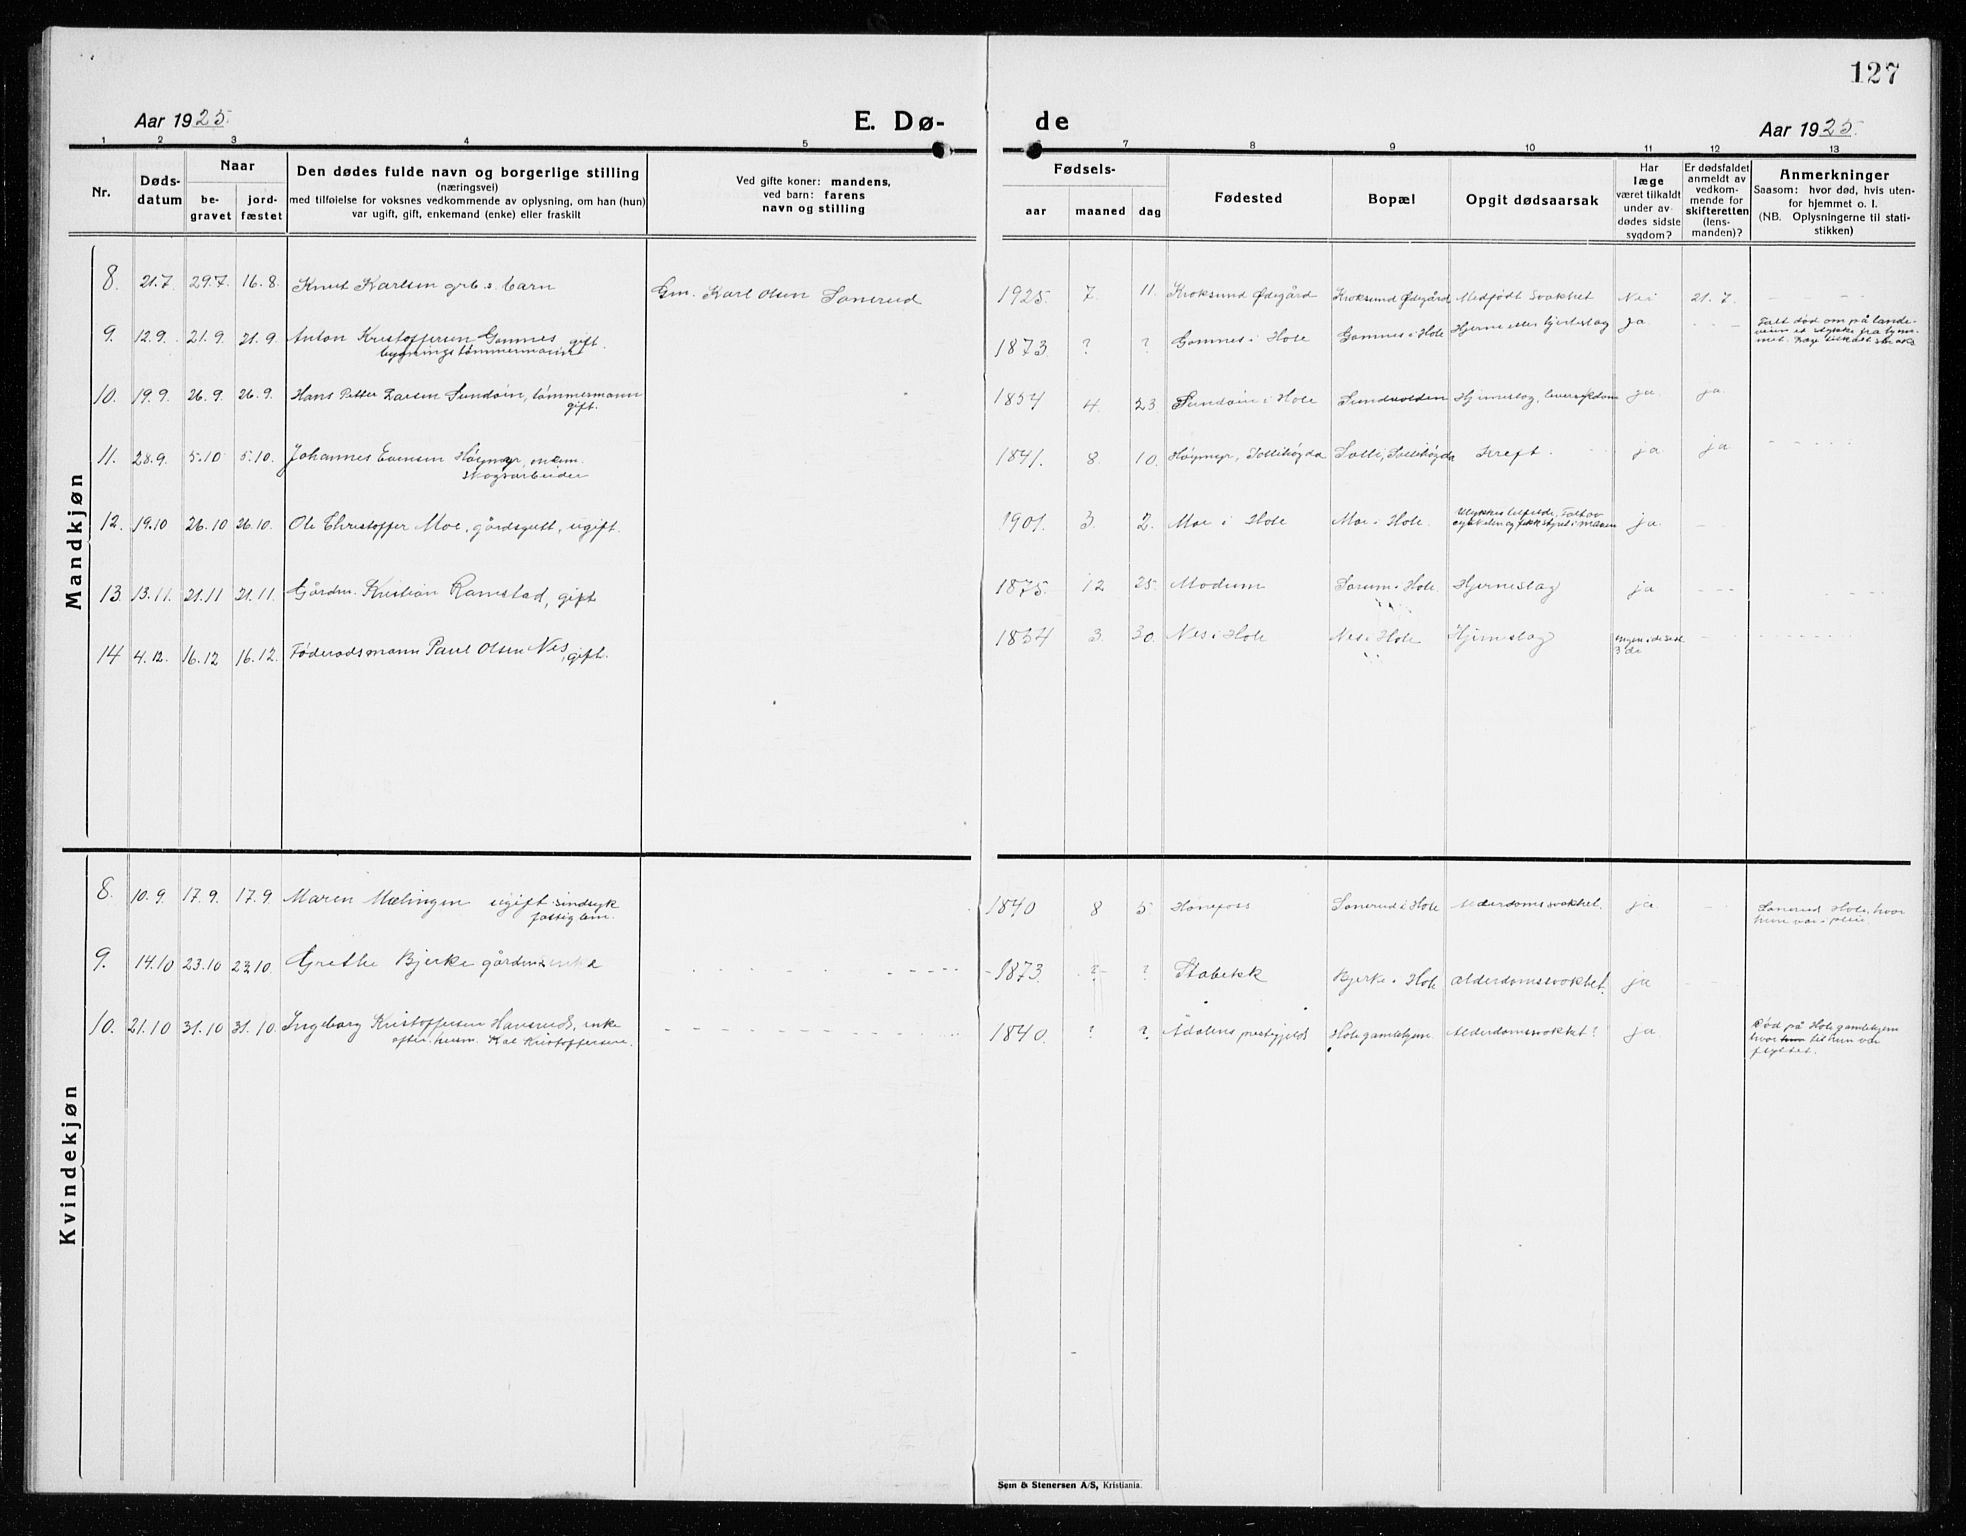 127
Aar 1925.
E. Dø-
de
Aar 1925.
1 2 3 4 5 6 7 8 9 10 11 12 13
Nr.
Døds-
datum
Naar
be-
gravet
jord-
fæstet
Den dødes fulde navn og borgerlige stilling
(næringsvei)
med tilføielse for voksnes vedkommende av oplysning, om han (hun)
var ugift, gift, enkemand (enke) eller fraskilt
Ved gifte koner: mandens,
ved barn: farens
navn og stilling
Fødsels-
aar maaned dag
Fødested
Bopæl
Opgit dødsaarsak
Har
læge
været tilkaldt
under av-
dødes sidste
sygdom?
Er dødsfaldet
anmeldt av
vedkom-
mende for
skifteretten
(lens-
manden)?
Anmerkninger
Saasom: hvor død, hvis uten-
for hjemmet o. l.
(NB. Oplysningerne til stati-
stikken)
Mandkjøn
8. 21.7. 29.7. 16.8. Knut Karlsen grb.s. barn Gm. Karl Olsen Sønerud 1925 7. 11. Kroksund Ødegård Kroksund Ødegård Medfødt svakhet Nei 21.7.
9. 12.9. 21.9. 21.9 Anton Kristoffersen Gomnes, gift.
bygningstømmermann 1873 ? ? Gomnes i Hole Gomnes i Hole Hjerne eller hjerteslag ja
Falt død om på lande-
veien et stykke fra
10. 19.9. 26.9. 26.9. Hans Petter Larsen Sundøin, tømmermann
gift. 1854 4. 23. Sundøin i Hole Sundvolden Hjerneslag, ja. ja.
11. 28.9. 5.10 5.10. Johannes Evensen Høymyr, enkem.
skogsarbeider 1841. 8. 10. Høymyr, Sollihøgda Solli, Sollihøgda Kreft. ja ja
12. 19.10 26.10 26.10. Ole Christoffer Moe, gårdsgutt, ugift. 1901. 3. 2. Moe i Hole Moe i Hole. Ulykkestilfelde. Falt av
sykkelen og fikk styret i maven ja.
13. 13.11. 21.11 21.11. Gårdm. Kristian Ramstad, gift 1875. 12 25. Modum Sørum i Hole. Hjerneslag ja
14 4.12. 16.12 16.12. Føderådsmann Paul Olsen Nes, gift. 1834 3. 30. Nes i Hole Nes i Hole Hjerneslag ingen i de siste
3 år
Kvindekjøn
8. 10.9. 17.9. 17.9. Maren Mælingen ugift sindsyk
fattiglem. 1840 8 5 Hønefoss Sønerud i Hole Alderdomssvakhet. ja
Sønerud Hole, hvor
hun var i pleie.
9. 14.10 23.10 23.10. Grethe Bjerke gårdm. enke 1873. ? ? Stabekk Bjerke i Hole alderdomssvakhet. ja
10. 21.10 31.10 31.10. Ingeborg Kristoffersen Hansrud, enke
efter husm. Kristoffersen. 1840. ? ? Ådalens prestegjeld Hole gamlehjem. Alderdomssvakhet? ja.
Død på Hole gamlehjem
hvor hun til hun var
flyttet.
Sem & Stenersen A/S, Kristiania.